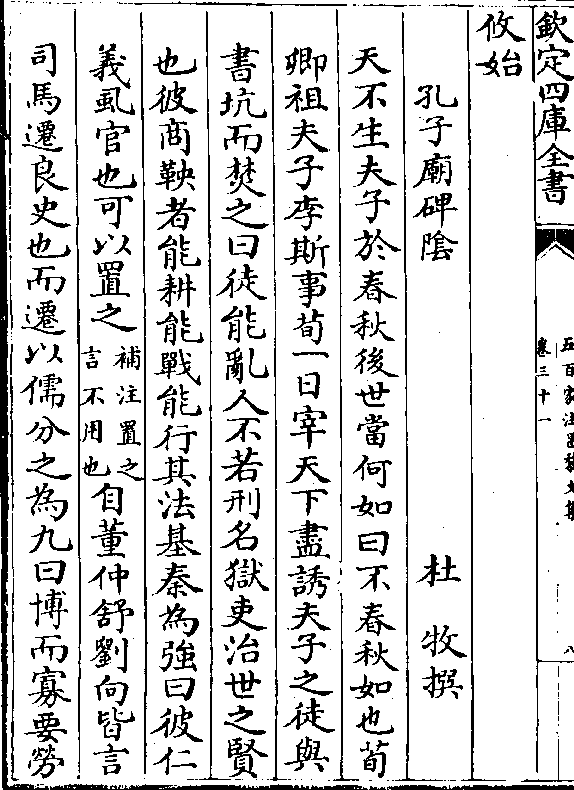 欽定四庫全書
攸始
孔子廟碑陰 杜牧撰
天不生夫子於春秋後世當何如曰不春秋如也荀
卿祖夫子李斯事荀一日宰天下盡誘夫子之徒與
書坑而焚之曰徒能亂人不若刑名獄吏治世之賢
也彼商鞅者能耕能戰能行其法基秦為強曰彼仁
義虱官也可以置之補注置之言不用也自董仲舒劉向皆言
司馬遷良史也而遷以儒分之為九曰博而寡要勞
五百家注昌黎文集
卷三十一
八